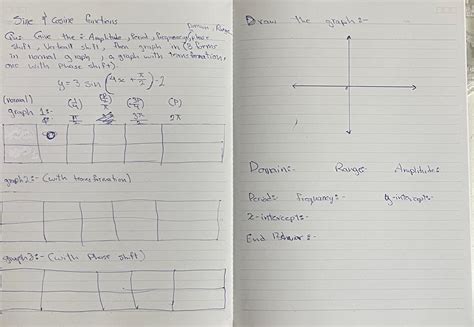 Sine & Cosine functions
Domain, Range
Qus: Give the :- Amplitude, Period, frequency, phase
shift, Vertical shift, Then graph in (3 forms
in normal graph, a graph with transformation,
one with phase shift).
y = 3 sin (4x + π/2) - 2
(normal)
(P)
graph 1:-
π/2
3π/2
2π
graph 2:- (with transformation)
graph 3:- (with Phase shift)
Draw the graph :-
Domain:- Range:- Amplitude:
Period:- frequency:- y-intercept:-
x-intercept:-
End Behavior:-